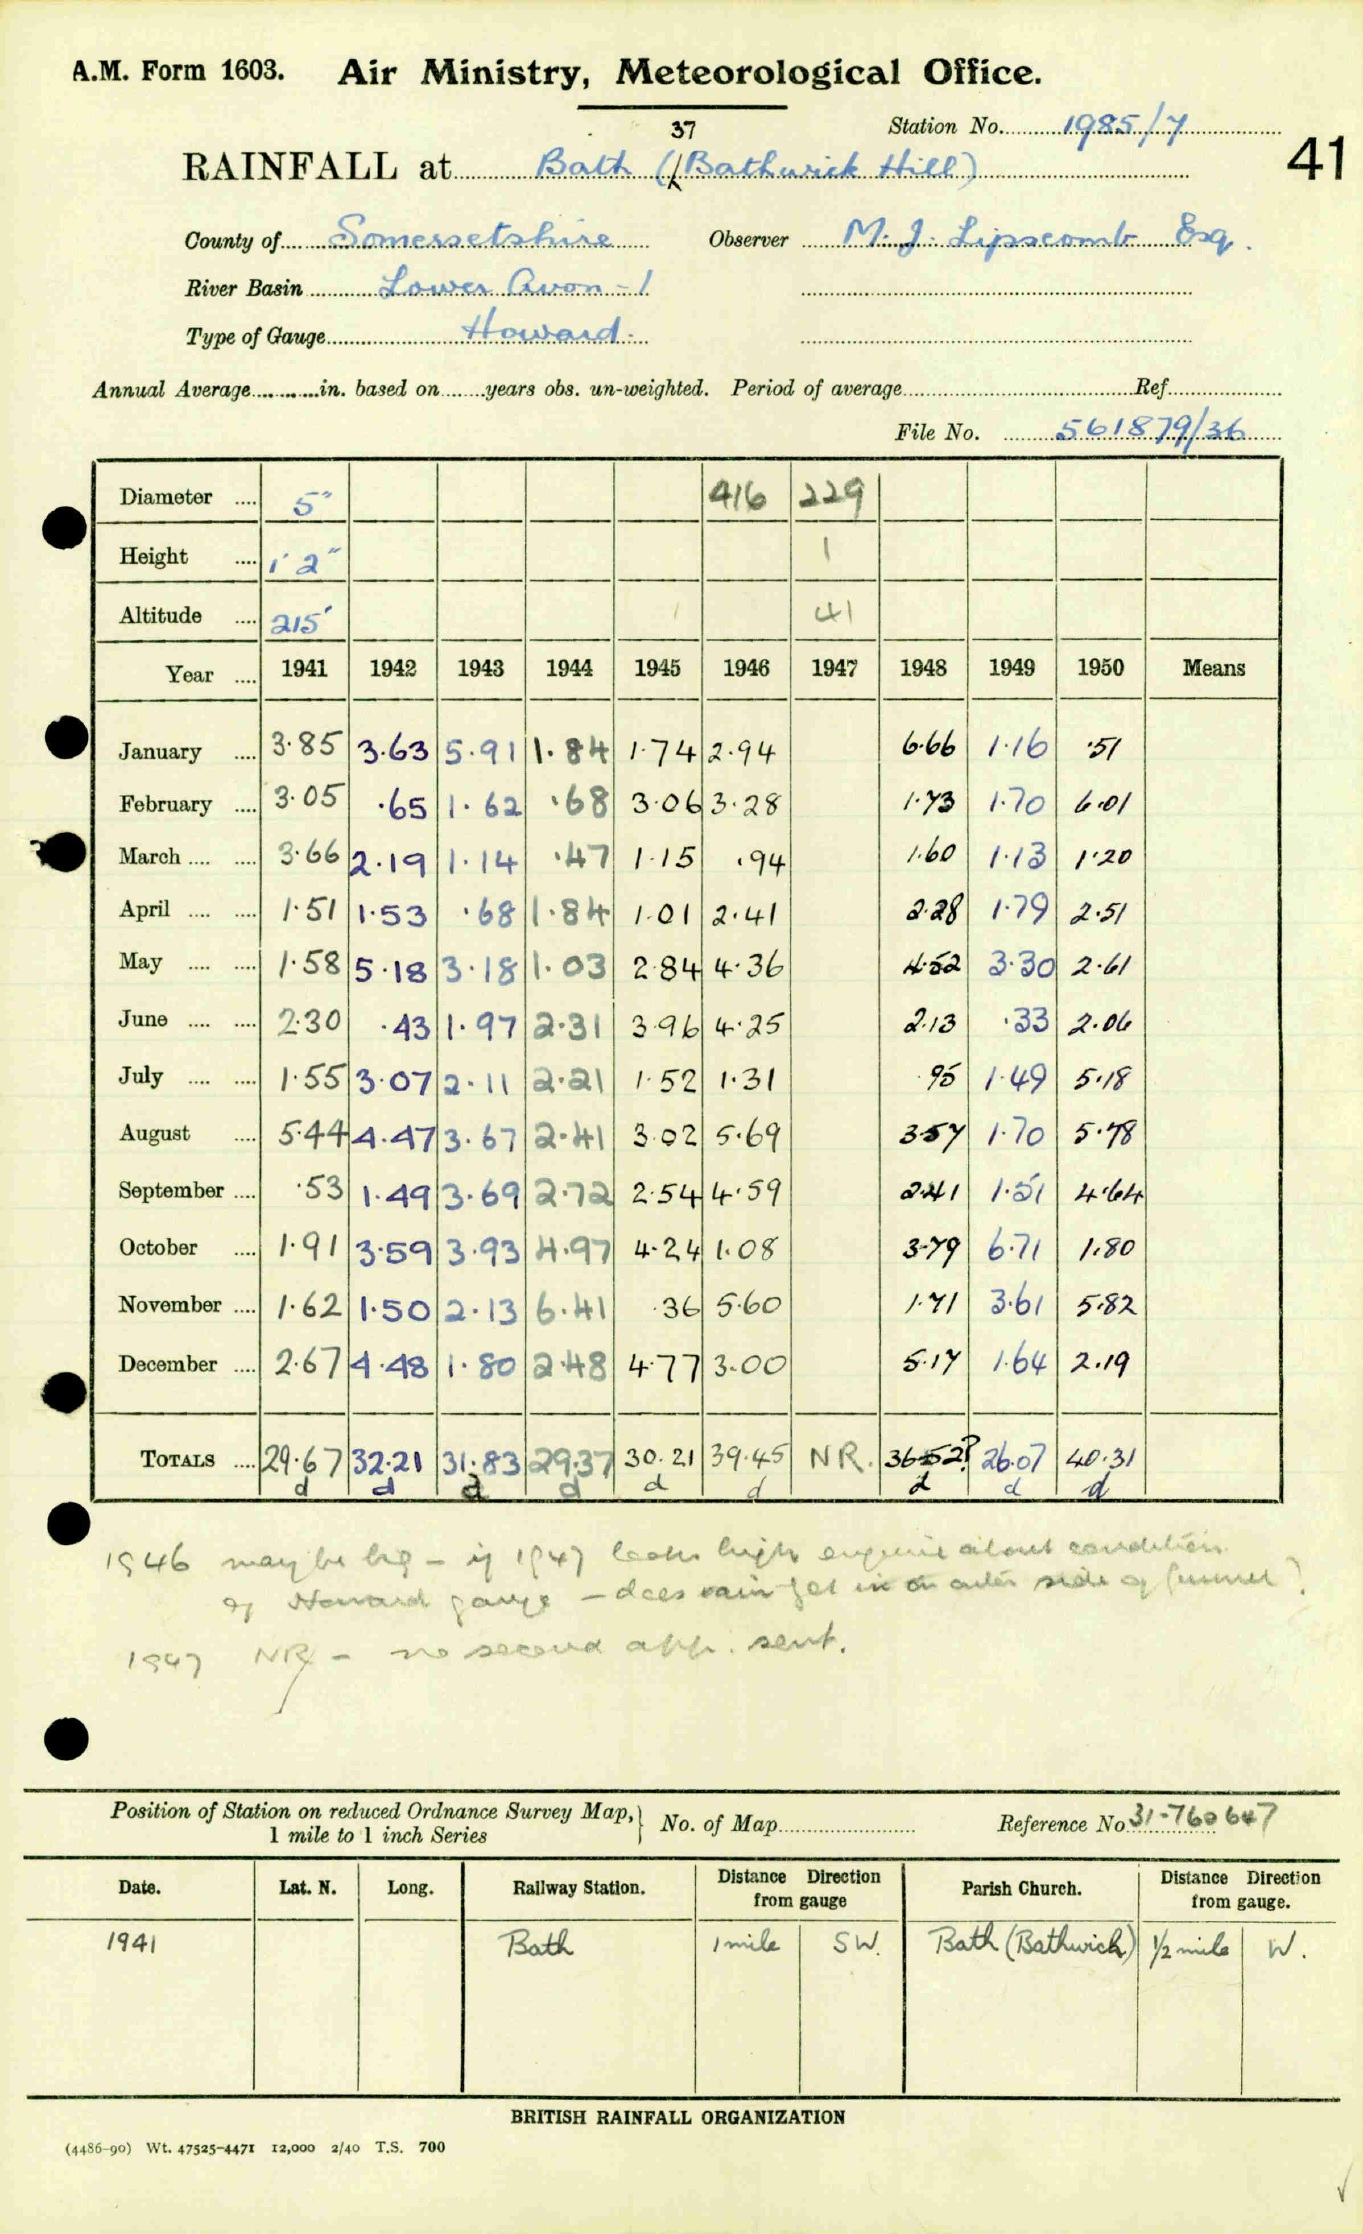 A.M. Form 1603. Air Ministry, Meteorological Office.
Station No. 1985/7
41
37
RAINFALL at Bath (Bathwick Hill)
County of Somersetshire Observer M. J. Lipscomb Esq.
River Basin Lower Avon - 1
Type of Gauge Howard.
Annual Average in. based on years obs. un-weighted. Period of average Ref.
File No. 561879/36
Diameter 5" 416 229
Height 1' 2" 1
Altitude 215' 41
Year 1941 1942 1943 1944 1945 1946 1947 1948 1949 1950 Means
January 3.85 3.63 5.91 1.84 1.74 2.94 6.66 1.16 .51
February 3.05 .65 1.62 .68 3.06 3.28 1.73 1.70 6.01
March 3.66 2.19 1.14 .47 1.15 .94 1.60 1.13 1.20
April 1.51 1.53 .68 1.84 1.01 2.41 2.28 1.79 2.51
May 1.58 5.18 3.18 1.03 2.84 4.36 4.52 3.30 2.61
June 2.30 .43 1.97 2.31 3.96 4.25 2.13 .33 2.06
July 1.55 3.07 2.11 2.21 1.52 1.31 .95 1.49 5.18
August 5.44 4.47 3.67 2.41 3.02 5.69 3.57 1.70 5.78
September .53 1.49 3.69 2.72 2.54 4.59 2.41 1.51 4.64
October 1.91 3.59 3.93 4.97 4.24 1.08 3.79 6.71 1.80
November 1.62 1.50 2.13 6.41 .36 5.60 1.71 3.61 5.82
December 2.67 4.48 1.80 2.48 4.77 3.00 5.17 1.64 2.19
TOTALS 29.67 32.21 31.83 29.37 30.21 39.45 NR. 36.52? 26.07 40.31
d d d d d d d d d
1946 may be big - if 1947 looks high enquire about condition
of Howard gauge - does rain get in on outer side of funnel?
1947 NR - no second app. sent.
Position of Station on reduced Ordnance Survey Map, 1 mile to 1 inch Series No. of Map Reference No 31-760647
Date. Lat. N. Long. Railway Station. Distance Direction from gauge Parish Church. Distance Direction from gauge.
1941 Bath 1 mile SW. Bath (Bathwick) 1/2 mile W.
BRITISH RAINFALL ORGANIZATION
(4486-90) Wt. 47525-4471 12,000 2/40 T.S. 700